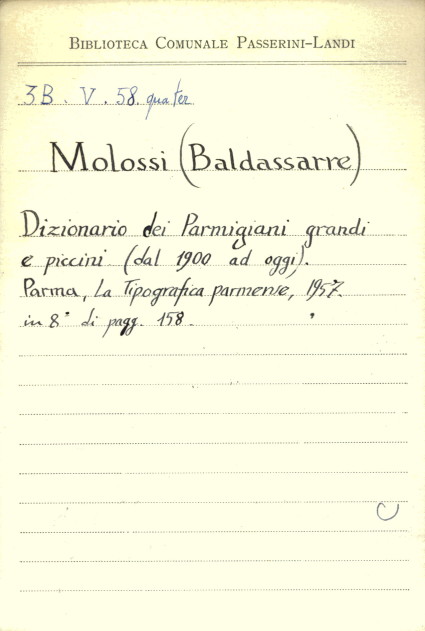 BIBLIOTECA COMUNALE PASSERINI-LANDI
3B. V. 58. quater
Molossi (Baldassarre)
Dizionario dei Parmigiani grandi
e piccini (dal 1900 ad oggi).
Parma, La Tipografica parmense, 1957.
in 8° di pagg. 158.